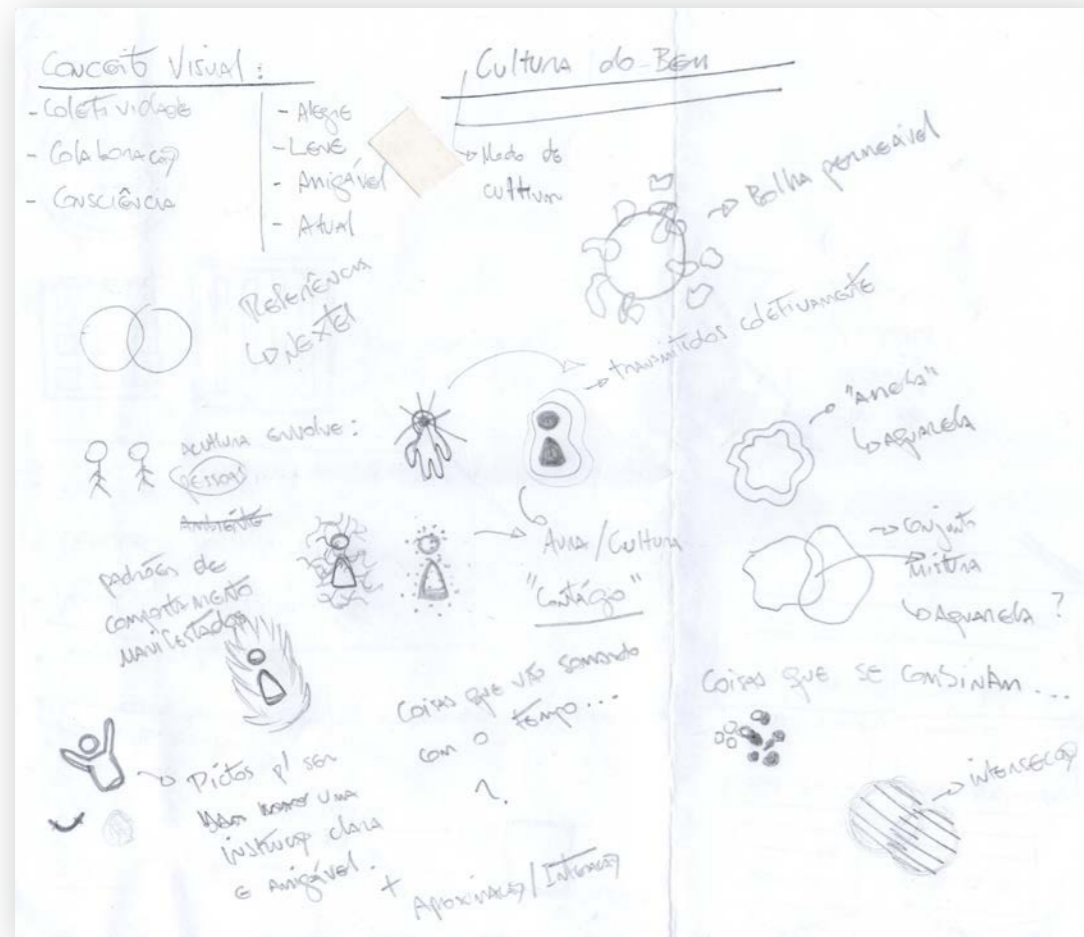 Conceito Visual:
- Coletividade
- Colaboração
- Consciência
- Alegre
- Leve
- Amigável
- Atual
Cultura do Bem
Modo de
cultivar
Bolha permeável
Referência
Conextel
transmitidos coletivamente
"Anela"
Aquarela
A cultura envolve:
pessoas
Ambiente
padrões de
comportamento
manifestados
Aura/Cultura
"Contágio"
Conjunto
Mistura
Aquarela?
Coisas que vão somando
com o tempo...
?
Coisas que se combinam...
Pictos p/ ser
uma
instrução clara
e amigável.
+ Aproximação/Integração
intersecção